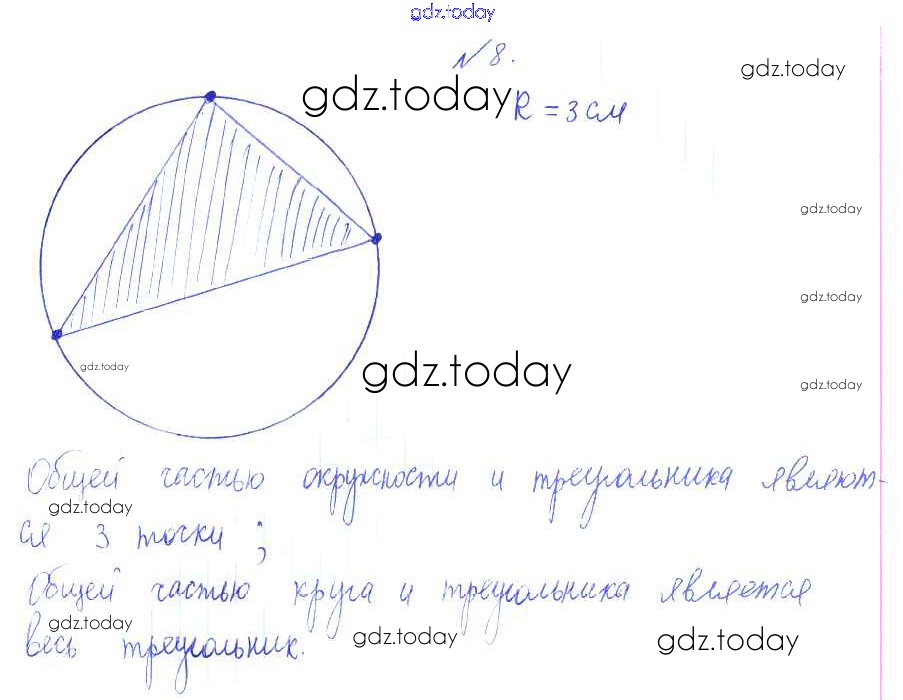 gdz.today
№ 8.
gdz.today
gdz.today R = 3 см
gdz.today
gdz.today
gdz.today
gdz.today
gdz.today
Общей частью окружности и треугольника являют-
gdz.today
ся 3 точки ;
Общей частью круга и треугольника является
gdz.today
весь треугольник.
gdz.today
gdz.today